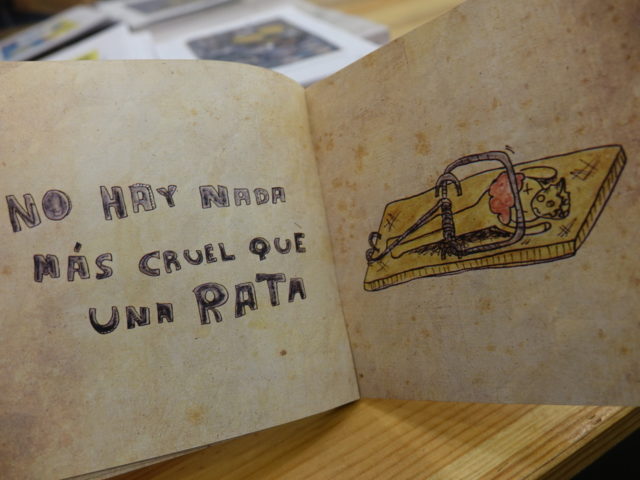 NO HAY NADA
MÁS CRUEL QUE
UNA RATA